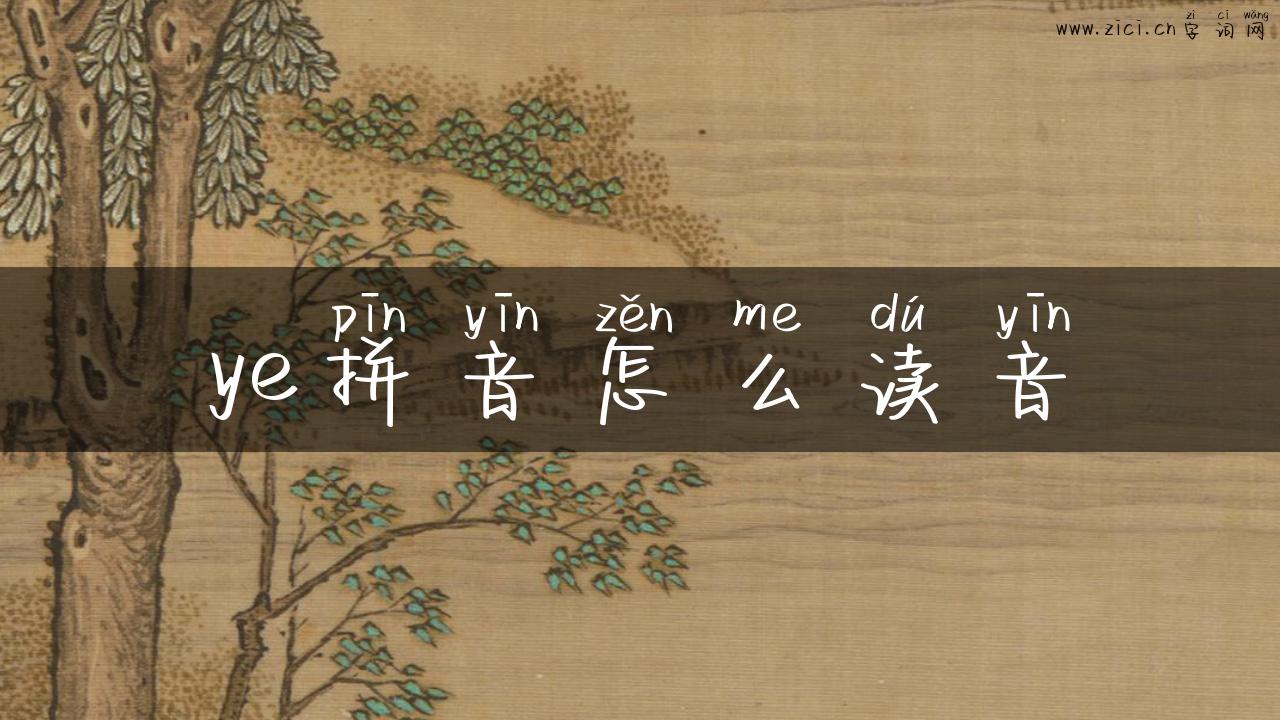 zì cí wǎng
www.zici.cn 字词网
pīn yīn zěn me dú yīn
ye拼音怎么读音